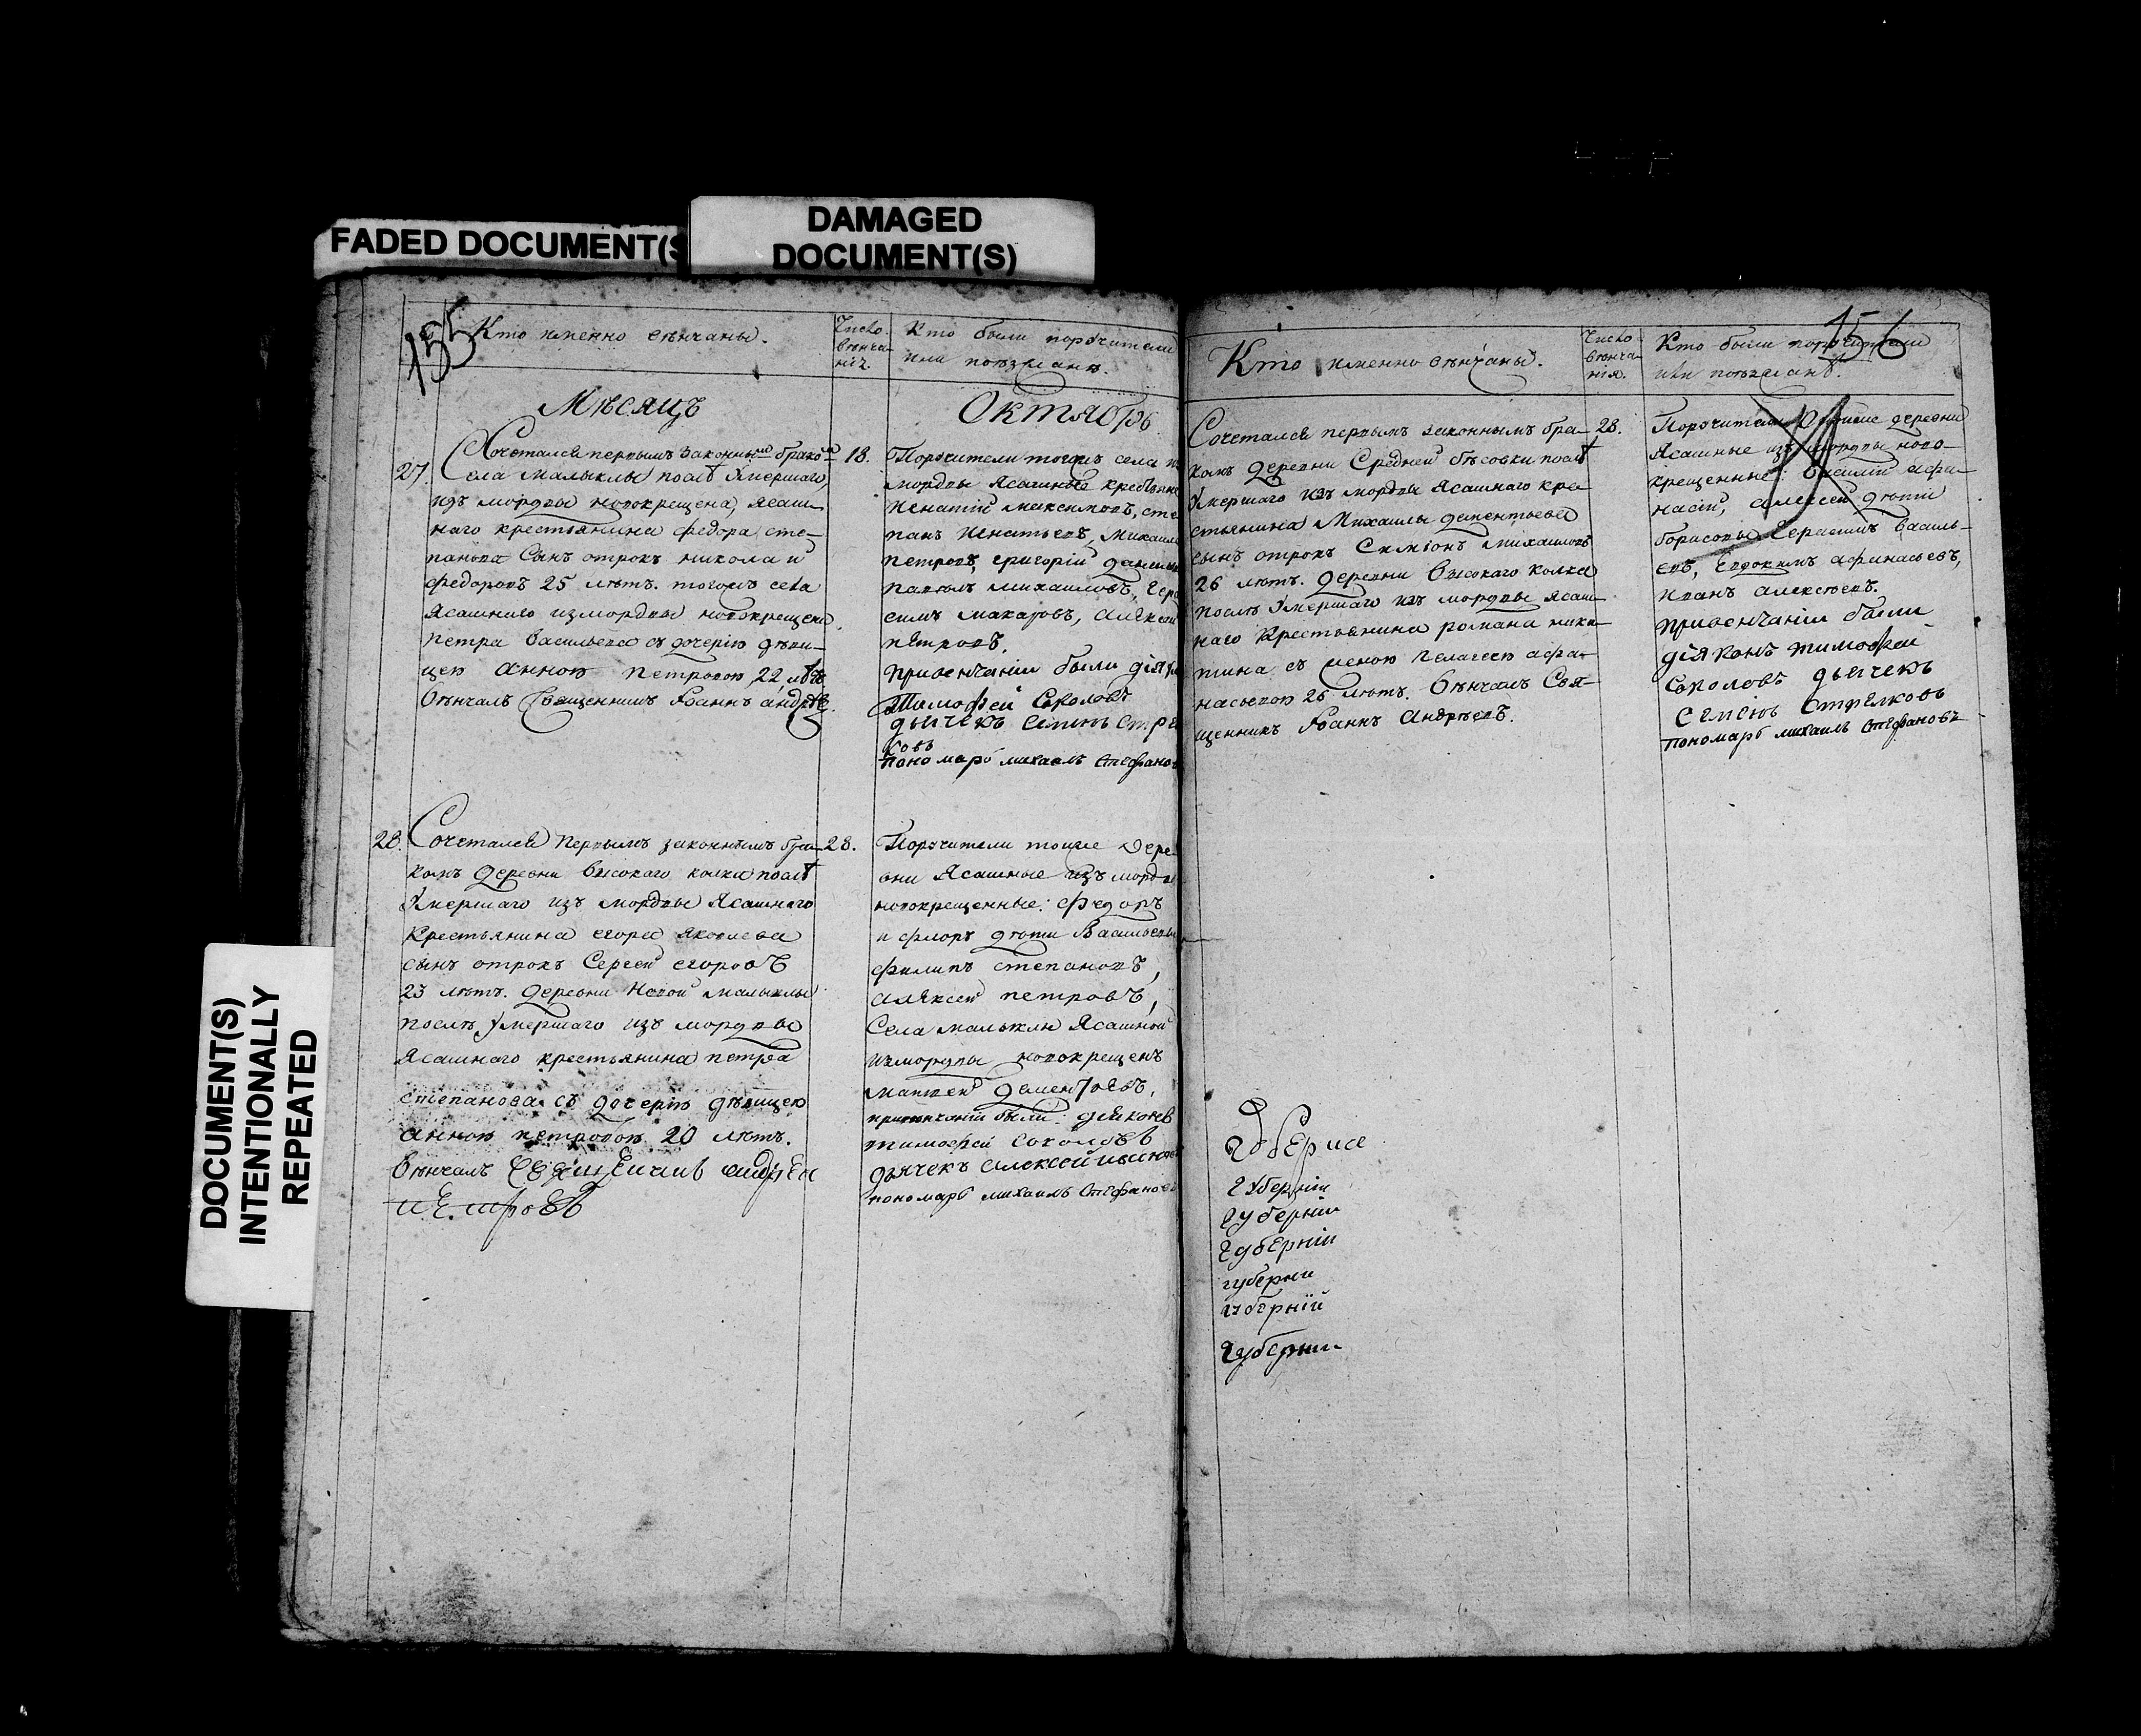 FADED DOCUMENT(S
DAMAGED
DOCUMENT(S)
DOCUMENT(S)
INTENTIONALLY
REPEATED
155
Кто именно венчаны.
Число
венча-
нія.
Кто были поручители
или поезжанѣ.
Мѣсяцъ
Октябрь
27.
Сочетался первымъ законнымъ бракомъ
села Малыклы послѣ Умершаго,
изъ мордвы новокрещена, ясаш-
наго крестьянина федора сте-
панова Сынъ отрокъ никола й
федоровъ 25 лѣтъ. тогожъ села
Ясашнаго измордвы новокрещена
Петра Васильева съ дочерію дѣви-
цею Анною Петровою 22 лѣтъ
Вѣнчалъ Священникъ Іоаннъ андрѣе.
18.
Поручители тогожъ села из
мордвы Ясашные крестьяне
Игнатій максимовъ, сте
панъ Игнатьевъ, Михаил
петровъ, григорій данило
павелъ михаиловъ, Гера
симъ макаровъ, Алексей
петровъ.
Привенчаніи были дія
Тимофей Соколовъ
дьячекъ семенъ Стрѣ
ковъ
пономарь михаилъ Стефано
28.
Сочетался Первымъ законнымъ бра-
комъ Деревни Высокаго колка послѣ
Умершаго изъ мордвы Ясашнаго
Крестьянина егора яковлева
сынъ отрокъ Сергей егоровъ
23 лѣтъ. Деревни Новой малыклы
послѣ Умершаго изъ мордвы
Ясашнаго крестьянина петра
степанова съ дочерію дѣвицею
Анною петровою 20 лѣтъ.
Вѣнчалъ Священникъ андрей
петровъ
28.
Поручители тоиже Дере
вни Ясашные изъ мордв
новокрещенные: Федоръ
и флоръ дѣти Васильевы
филипъ степановъ,
Алексей петровъ,
Села малыклы Ясашной
измордвы новокрещенъ
матвей дементьевъ,
привенчаніи были: діяконъ
тимофей соколовъ
дьячекъ алексей
пономарь михаилъ Стефанов
156
Кто именно венчаны.
Число
венча-
нія.
Кто были поручители
или поезжанѣ.
Сочетался первымъ законнымъ бра-
комъ Деревни Средней бѣсовки послѣ
Умершаго изъ мордвы Ясашнаго кре
стьянина Михаилы дементьева
сынъ отрокъ Симіонъ Михаиловъ
26 лѣтъ. Деревни Высокаго колка
послѣ Умершаго изъ мордвы ясаш-
наго Крестьянина романа ники-
тина съ женою Пелагеею афа-
насьевою 26 лѣтъ. Вѣнчалъ Свя-
щенникъ Іоаннъ Андрѣевъ.
28.
Поручители тоиже деревни
Ясашные изъ мордвы ново-
крещенные: Василій афи-
насіи, Алексей дѣти
борисовы Герасимъ василь-
евъ, Евдокимъ афинасьевъ,
Иванъ алексѣевъ.
привенчаніи были
діяконъ тимофей
соколовъ дьячекъ
семенъ Стрѣлковъ
пономарь михаилъ Стефановъ
губерніи
губерніи
губерніи
губерни
губерній
губерніи